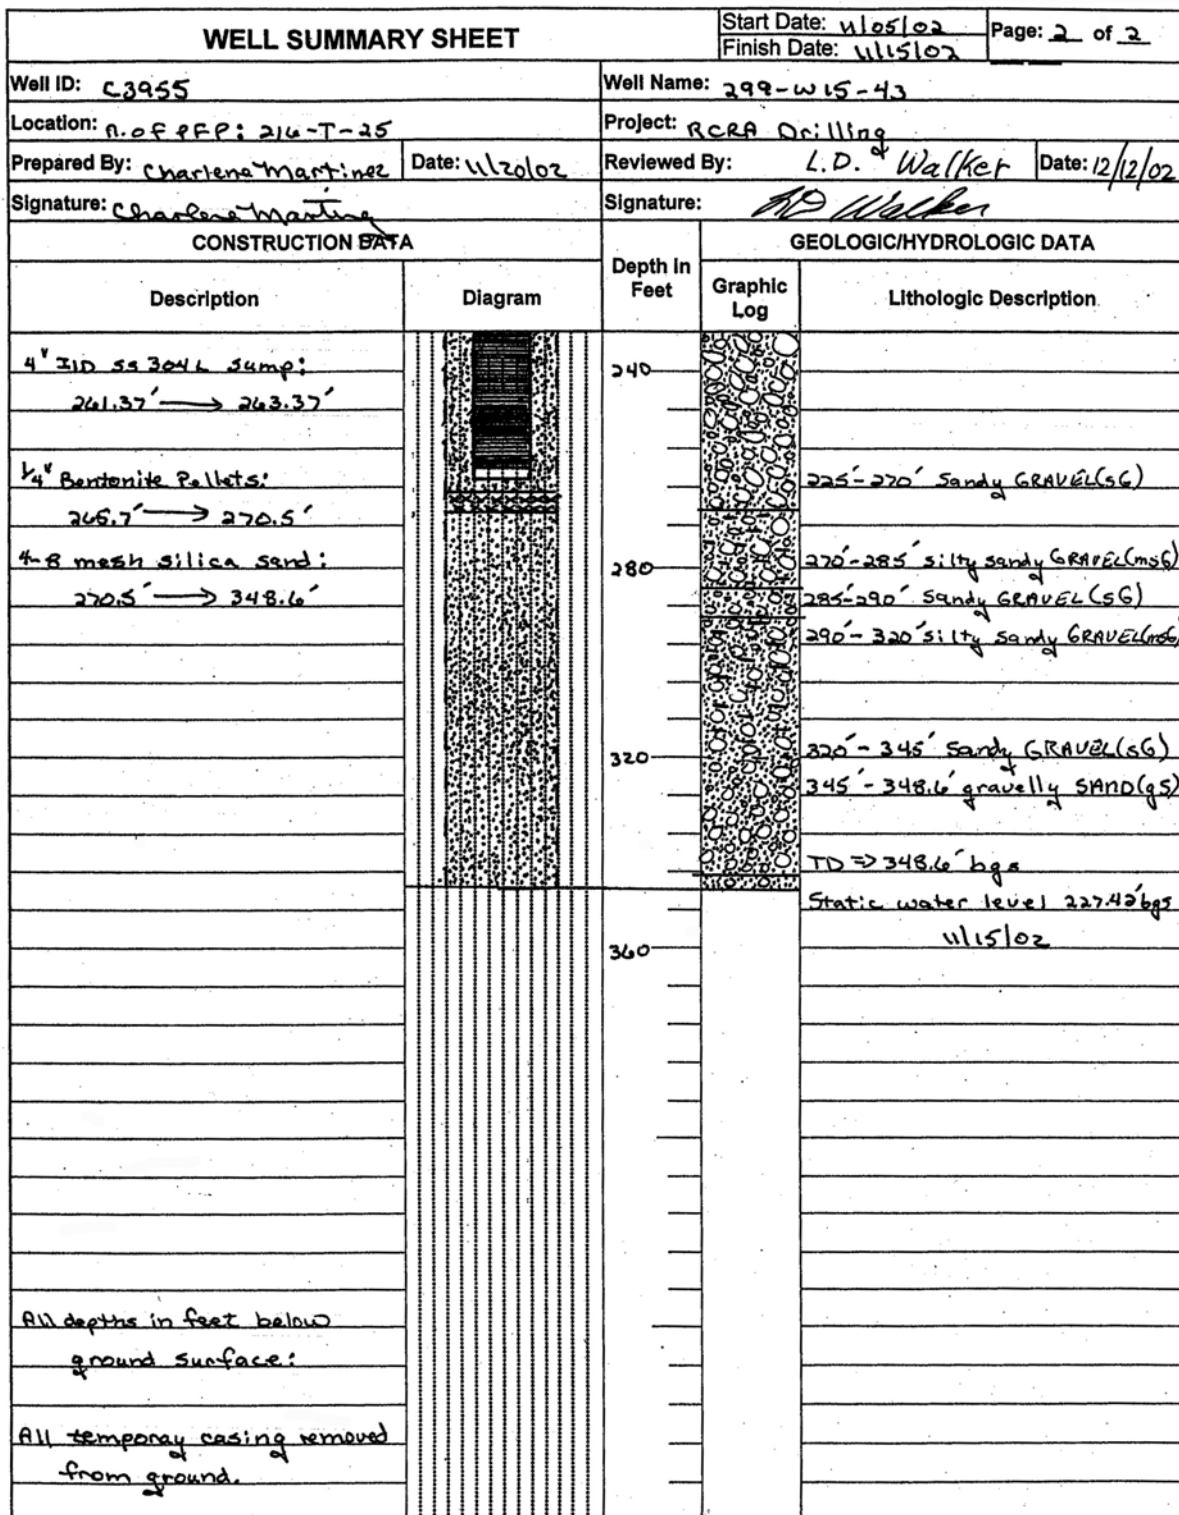 WELL SUMMARY SHEET
Start Date: 11/05/02
Finish Date: 11/15/02
Page: 2 of 2
Well ID: C3955
Well Name: 299-W15-43
Location: n. of PFP; 216-T-25
Project: RCRA Drilling
Prepared By: Charlene Martinez
Date: 11/20/02
Reviewed By: L.D. Walker
Date: 12/12/02
Signature: Charlene Martinez
Signature: LD Walker
CONSTRUCTION DATA
GEOLOGIC/HYDROLOGIC DATA
Description
Diagram
Depth in Feet
Graphic Log
Lithologic Description
4" ID ss 304L sump:
261.37' → 263.37'
1/4" Bentonite Pellets:
265.7' → 270.5'
4-8 mesh silica sand:
270.5' → 348.6'
All depths in feet below
ground surface:
All temporay casing removed
from ground.
240
280
320
360
225'-270' Sandy GRAVEL (sG)
270'-285' silty sandy GRAVEL (msG)
285'-290' Sandy GRAVEL (sG)
290'-320' silty sandy GRAVEL (msG)
320'-345' Sandy GRAVEL (sG)
345'-348.6' gravelly SAND (gS)
TD => 348.6' bgs
Static water level 227.42' bgs
11/15/02